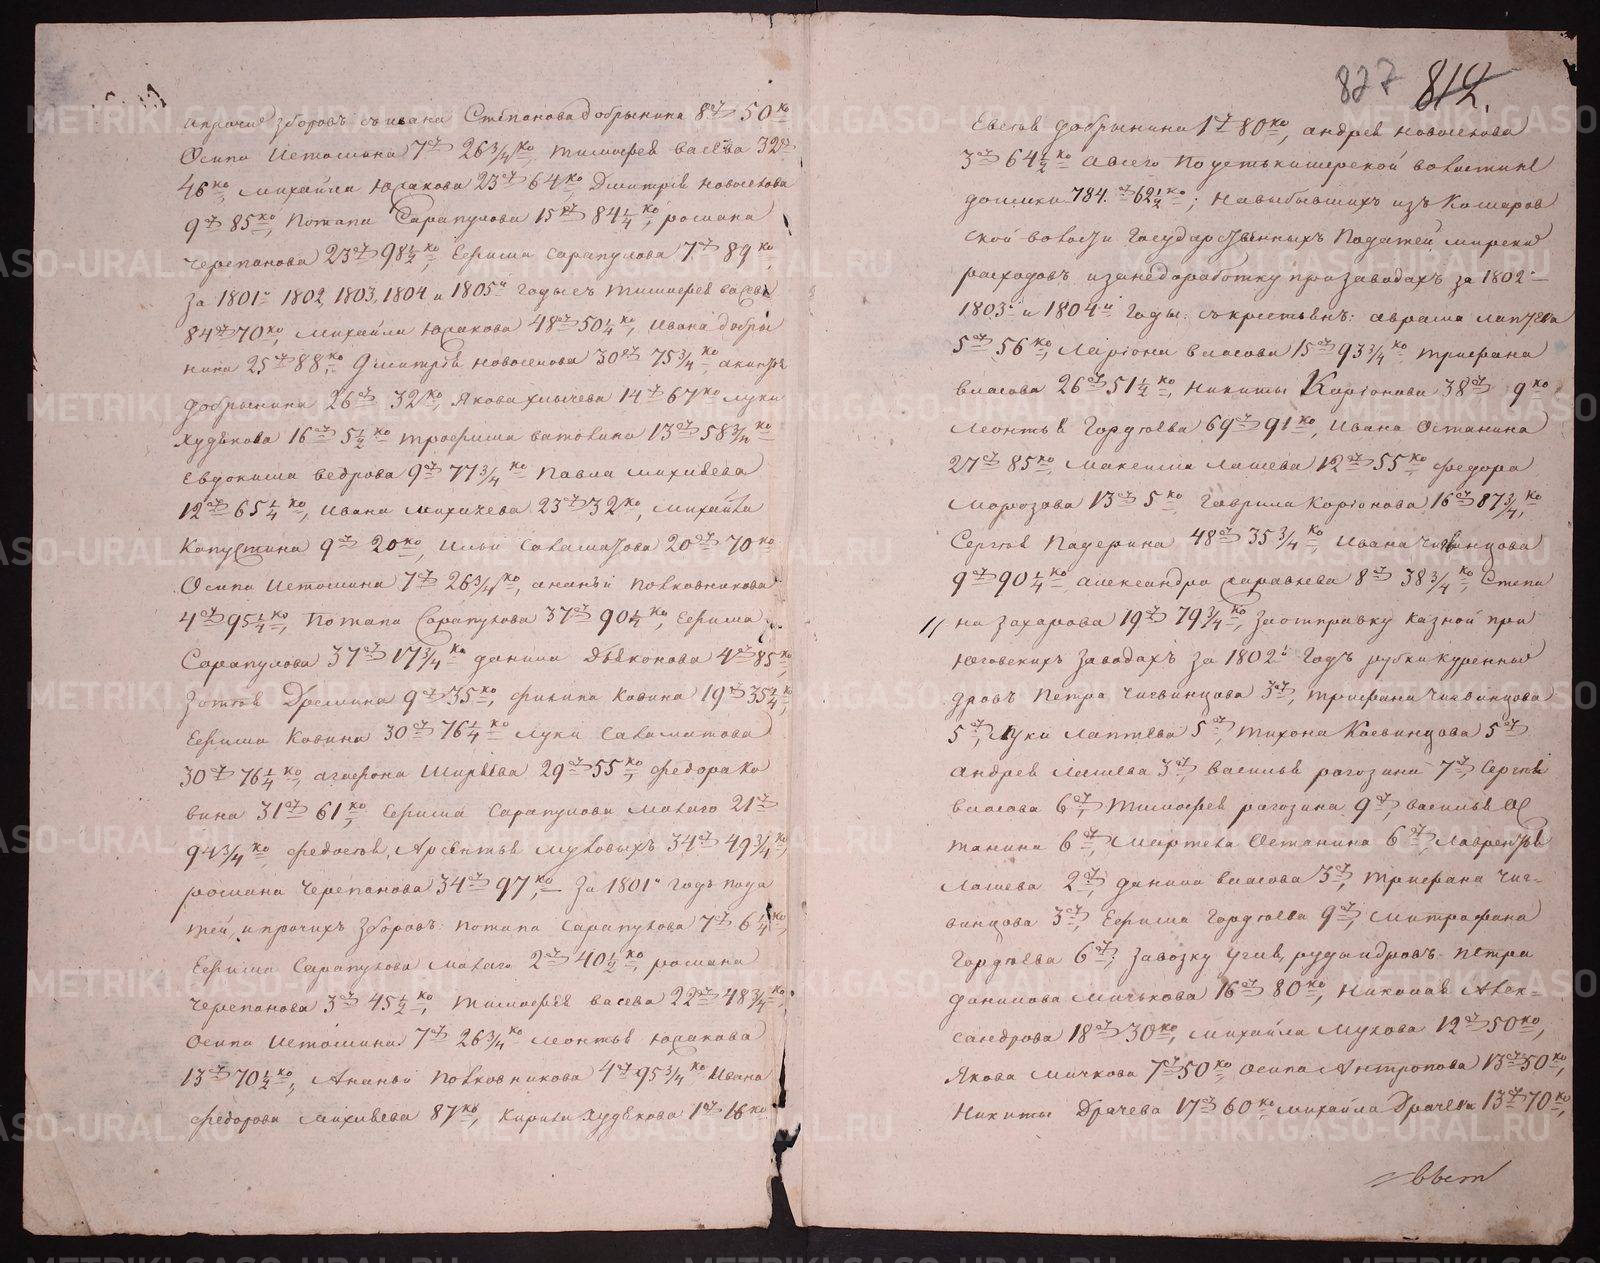 ипрочих зборовъ съ ивана Степанова добрынина 8 р 50 ко
Осипа Истомина 7 р 26 3/4 ко, тимофея васева 32 р
46 ко, михайла Юрakова 23 р 64 ко Дмитрея новоселова
9 р 85 ко, Потапа Сарапулова 15 р 84 1/4 ко, романа
Черепанова 23 р 98 1/2 ко, Ефима Сарапулова 7 р 84 ко,
За 1801й 1802, 1803, 1804 и 1805й годы съ тимофея васева
84 р 70 ко, михайла Юракова 48 р 50 1/4 ко, Ивана добры
нина 25 р 88 ко, Дмитрея новоселова 30 р 75 3/4 ко,
добрынина 26 р 32 ко, Якова 14 р 67 ко луки
худякова 16 р 5 1/2 ко трофима ватолина 13 р 58 3/4 ко
Евдокима ведрова 9 р 77 3/4 ко Павла михиева
12 р 65 1/4 ко, Ивана 23 р 32 ко, михайла
Капустина 9 р 20 ко, Ильи Саламатова 20 р 70 ко
Осипа Истомина 7 р 26 3/4 ко, ананьи Полковникова
4 р 95 1/4 ко, Потапа Сарапулова 37 р 90 1/4 ко, Ефима
Сарапулова 37 р 17 3/4 ко данила Дьяконова 4 р 85 ко,
Зотея 9 р 35 ко, филипа Ковина 19 р 35 1/4 ко,
Ефима Ковина 30 р 76 1/4 ко луки Саламатова
30 р 76 1/4 ко, агафона Ширяева 29 р 55 ко, федора Ко
вина 31 р 61 ко, Ефима Сарапулова малаго 21 р
94 3/4 ко, федосея, Арсентья Муховыхъ 34 р 49 3/4 ко,
романа Черепанова 34 р 97 ко, За 1801й годъ пода
тей, и прочихъ зборовъ: потапа Сарапулова 7 р 6 1/4 ко,
Ефима Сарапулова малаго 2 р 40 1/2 ко, романа
Черепанова 3 р 45 1/2 ко, тимофея васева 22 р 48 3/4 ко,
Осипа Истомина 7 р 26 3/4 ко леонтья Юракова
13 р 70 1/2 ко, Ананьи Полковникова 4 р 95 3/4 ко, Ивана
федорова михиева 87 ко, Кирила худякова 1 р 16 ко
827 812.
Евсея добрынина 1 р 80 ко, андрея новоселова
3 р 64 1/2 ко авсего по устькишерской воластине
доимки 784 р 62 1/2 ко; навыбывшихъ изъ Комаров
ской воласти Государственныхъ Податей мирских
расходовъ изанедоработку призаводахъ за 1802й
1803й и 1804й Годы: съ крестьянъ: аврама лаптева
5 р 56 ко, ларiона власова 15 р 93 3/4 ко трифана
власова 26 р 51 1/2 ко, никиты Карiонова 38 р 9 ко
леонтья Гордѣева 69 р 91 ко, Ивана Останина
27 р 85 ко, максима лашева 12 р 55 ко федора
морозова 13 р 5 ко Гаврила Карiонова 16 р 87 3/4 ко,
Сергея Падерина 48 р 35 3/4 ко Ивана Чигвинцова
9 р 90 1/4 ко александра 8 р 38 3/4 ко, Степа
на захарова 19 р 79 3/4 ко, заотправку казной при
Юговскихъ заводахъ за 1802й Годъ рубки куренных
дровъ Петра Чигвинцова 3 р, трифана Чигвинцова
5 р, луки лаптева 5 р, тихона Кигвинцова 5 р
андрея лашева 3 р, василья рагозина 7 р, Сергея
власова 6 р, тимофея рагозина 9 р, василья Ос
танина 6 р, мартела Останина 6 р, лаврентья
лашева 2 р, данила власова 3 р, трифана Чиг=
винцова 3 р, Ефима Гордѣева 9 р, митрафана
Гордѣева 6 р, завозку углей, руды идровъ: петра
данилова мичькова 16 р 80 ко, николая Алек=
сандрова 18 р 30 ко, михайла мухова 12 р 50 ко,
Якова мичкова 7 р 50 ко, Осипа Антропова 13 р 50 ко,
никиты Драчева 17 р 60 ко михайла Драчева 13 р 70 ко,